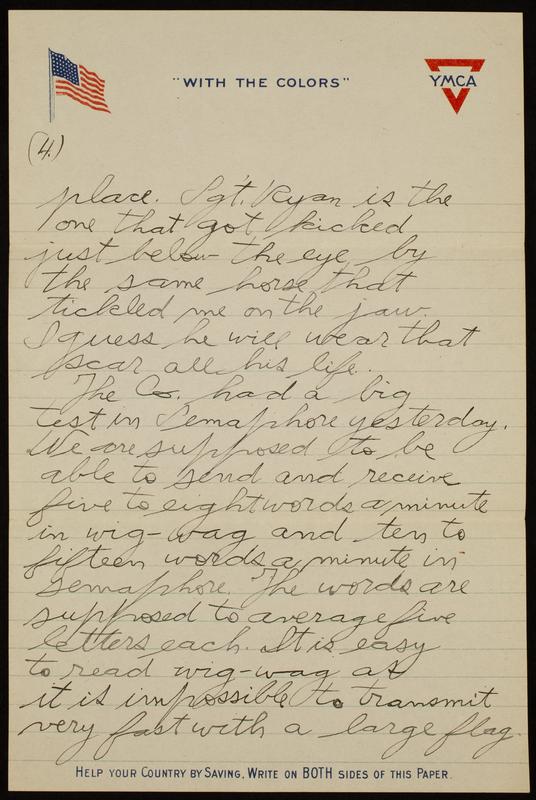 "WITH THE COLORS"
YMCA
(4.)
place. Sgt. Ryan is the
one that got kicked
just below the eye by
the same horse that
tickled me on the jaw.
I guess he will wear that
scar all his life.
The Co. had a big
test in Semaphore yesterday.
We are supposed to be
able to send and receive
five to eight words a minute
in wig-wag and ten to
fifteen words a minute in
Semaphore. The words are
supposed to average five
letters each. It is easy
to read wig-wag as
it is impossible to transmit
very fast with a large flag.
HELP YOUR COUNTRY BY SAVING. WRITE ON BOTH SIDES OF THIS PAPER.